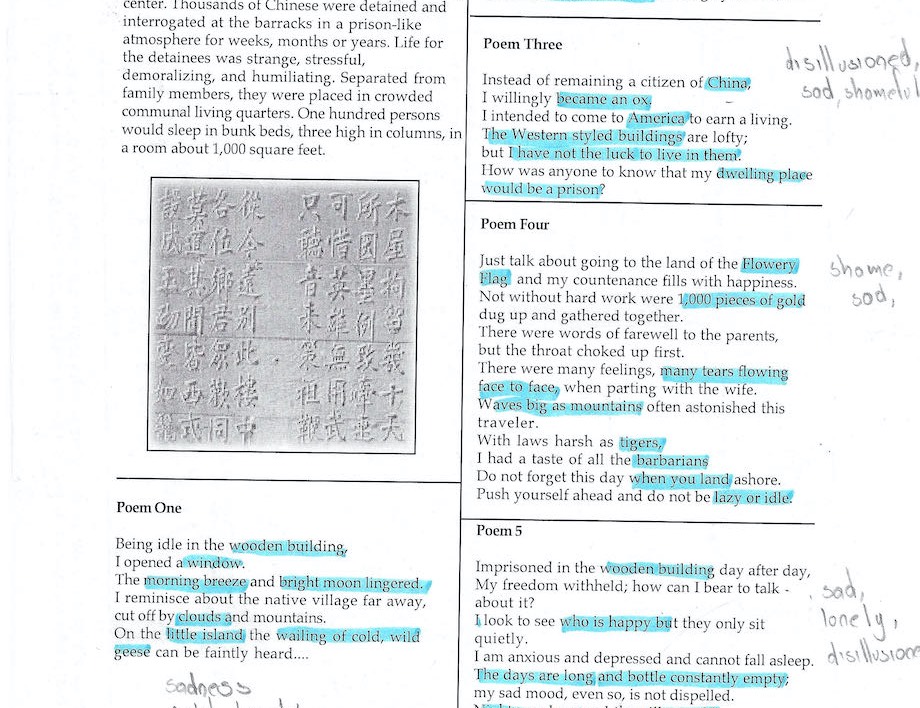 center. Thousands of Chinese were detained and
interrogated at the barracks in a prison-like
atmosphere for weeks, months or years. Life for
the detainees was strange, stressful,
demoralizing, and humiliating. Separated from
family members, they were placed in crowded
communal living quarters. One hundred persons
would sleep in bunk beds, three high in columns, in
a room about 1,000 square feet.
木屋拘留幾十天
所囚墨例致牽連
可惜英雄無用武
只聽音來策祖鞭
從今遠別此樓中
各位鄉君衆歡同
莫道其間皆西式
設成玉砌變如籠
Poem One
Being idle in the wooden building,
I opened a window.
The morning breeze and bright moon lingered.
I reminisce about the native village far away,
cut off by clouds and mountains.
On the little island the wailing of cold, wild
geese can be faintly heard....
sadness
Poem Three
Instead of remaining a citizen of China,
I willingly became an ox.
I intended to come to America to earn a living.
The Western styled buildings are lofty;
but I have not the luck to live in them.
How was anyone to know that my dwelling place
would be a prison?
disillusioned,
sad, shameful
Poem Four
Just talk about going to the land of the Flowery
Flag and my countenance fills with happiness.
Not without hard work were 1,000 pieces of gold
dug up and gathered together.
There were words of farewell to the parents,
but the throat choked up first.
There were many feelings, many tears flowing
face to face, when parting with the wife.
Waves big as mountains often astonished this
traveler.
With laws harsh as tigers,
I had a taste of all the barbarians
Do not forget this day when you land ashore.
Push yourself ahead and do not be lazy or idle.
shame,
sad,
Poem 5
Imprisoned in the wooden building day after day,
My freedom withheld; how can I bear to talk -
about it?
I look to see who is happy but they only sit
quietly.
I am anxious and depressed and cannot fall asleep.
The days are long and bottle constantly empty;
my sad mood, even so, is not dispelled.
sad,
lonely,
disillusione